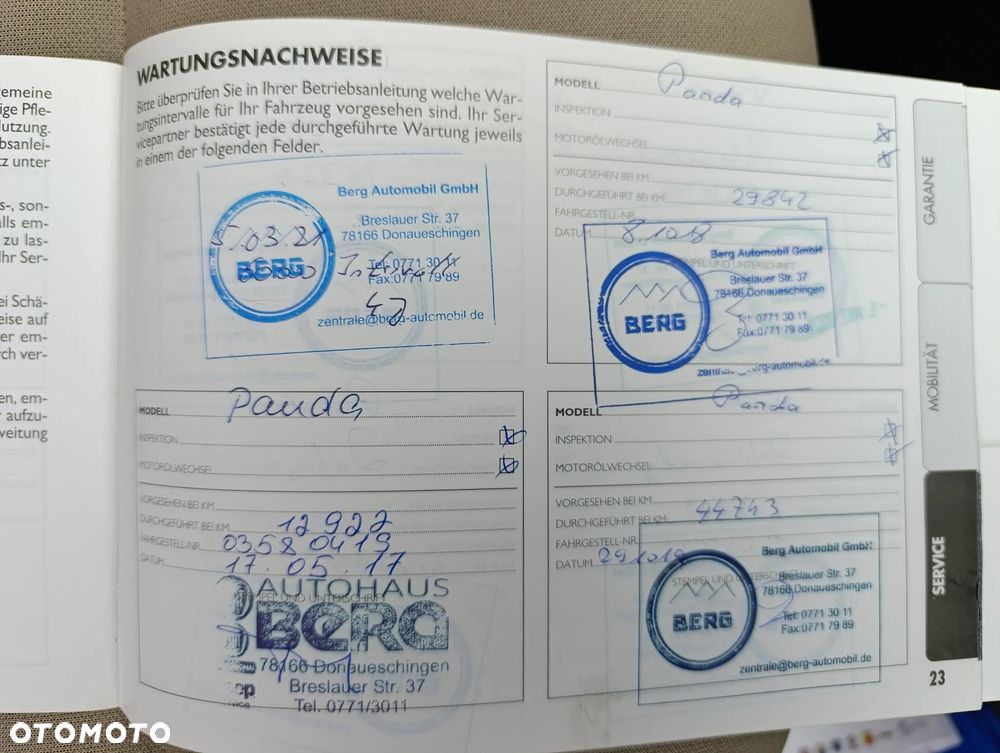 gemeine
ige Pfle-
lutzung.
bsanlei-
tz unter
s-, son-
alls em-
zu las-
Ihr Ser-
ei Schä-
eise auf
er em-
rch ver-
en, em-
aufzu-
weitung
WARTUNGSNACHWEISE
Bitte überprüfen Sie in Ihrer Betriebsanleitung welche War-
tungsintervalle für Ihr Fahrzeug vorgesehen sind. Ihr Ser-
vicepartner bestätigt jede durchgeführte Wartung jeweils
in einem der folgenden Felder.
Berg Automobil GmbH
Breslauer Str. 37
78166 Donaueschingen
Tel: 0771 30 11
Fax:0771 79 89
zentrale@berg-automobil.de
BERG
5.03.21
MODELL Panda
INSPEKTION
MOTORÖLWECHSEL
VORGESEHEN BEI KM
DURCHGEFÜHRT BEI KM 29842
FAHRGESTELL-NR.
DATUM 8.1018
STEMPEL UND UNTERSCHRIFT
Berg Automobil GmbH
Breslauer Str. 37
78166 Donaueschingen
Tel: 0771 30 11
Fax:0771 79 89
BERG
MODELL Panda
INSPEKTION
MOTORÖLWECHSEL
VORGESEHEN BEI KM
DURCHGEFÜHRT BEI KM 12 922
FAHRGESTELL-NR. 0358 0419
DATUM 17.05.17
AUTOHAUS
BERG
78166 Donaueschingen
Breslauer Str. 37
Tel. 0771/3011
MODELL Panda
INSPEKTION
MOTORÖLWECHSEL
VORGESEHEN BEI KM
DURCHGEFÜHRT BEI KM 44743
FAHRGESTELL-NR.
DATUM 291019
STEMPEL UND UNTERSCHRIFT
Berg Automobil GmbH
Breslauer Str. 37
78166 Donaueschingen
Tel: 0771 30 11
Fax:0771 79 89
zentrale@berg-automobil.de
BERG
GARANTIE
MOBILITÄT
SERVICE
23
OTOMOTO